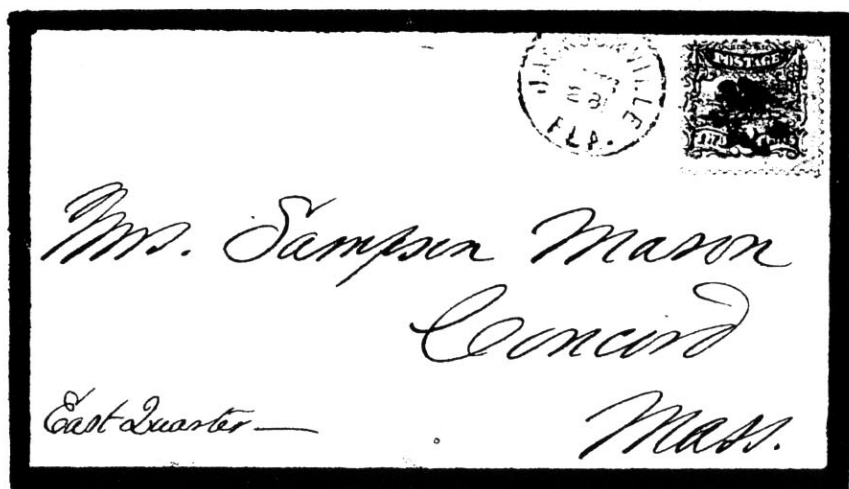 JACKSONVILLE
28
FLA.
POSTAGE
Mrs. Sampson Mason
Concord
East Quarter
Mass.